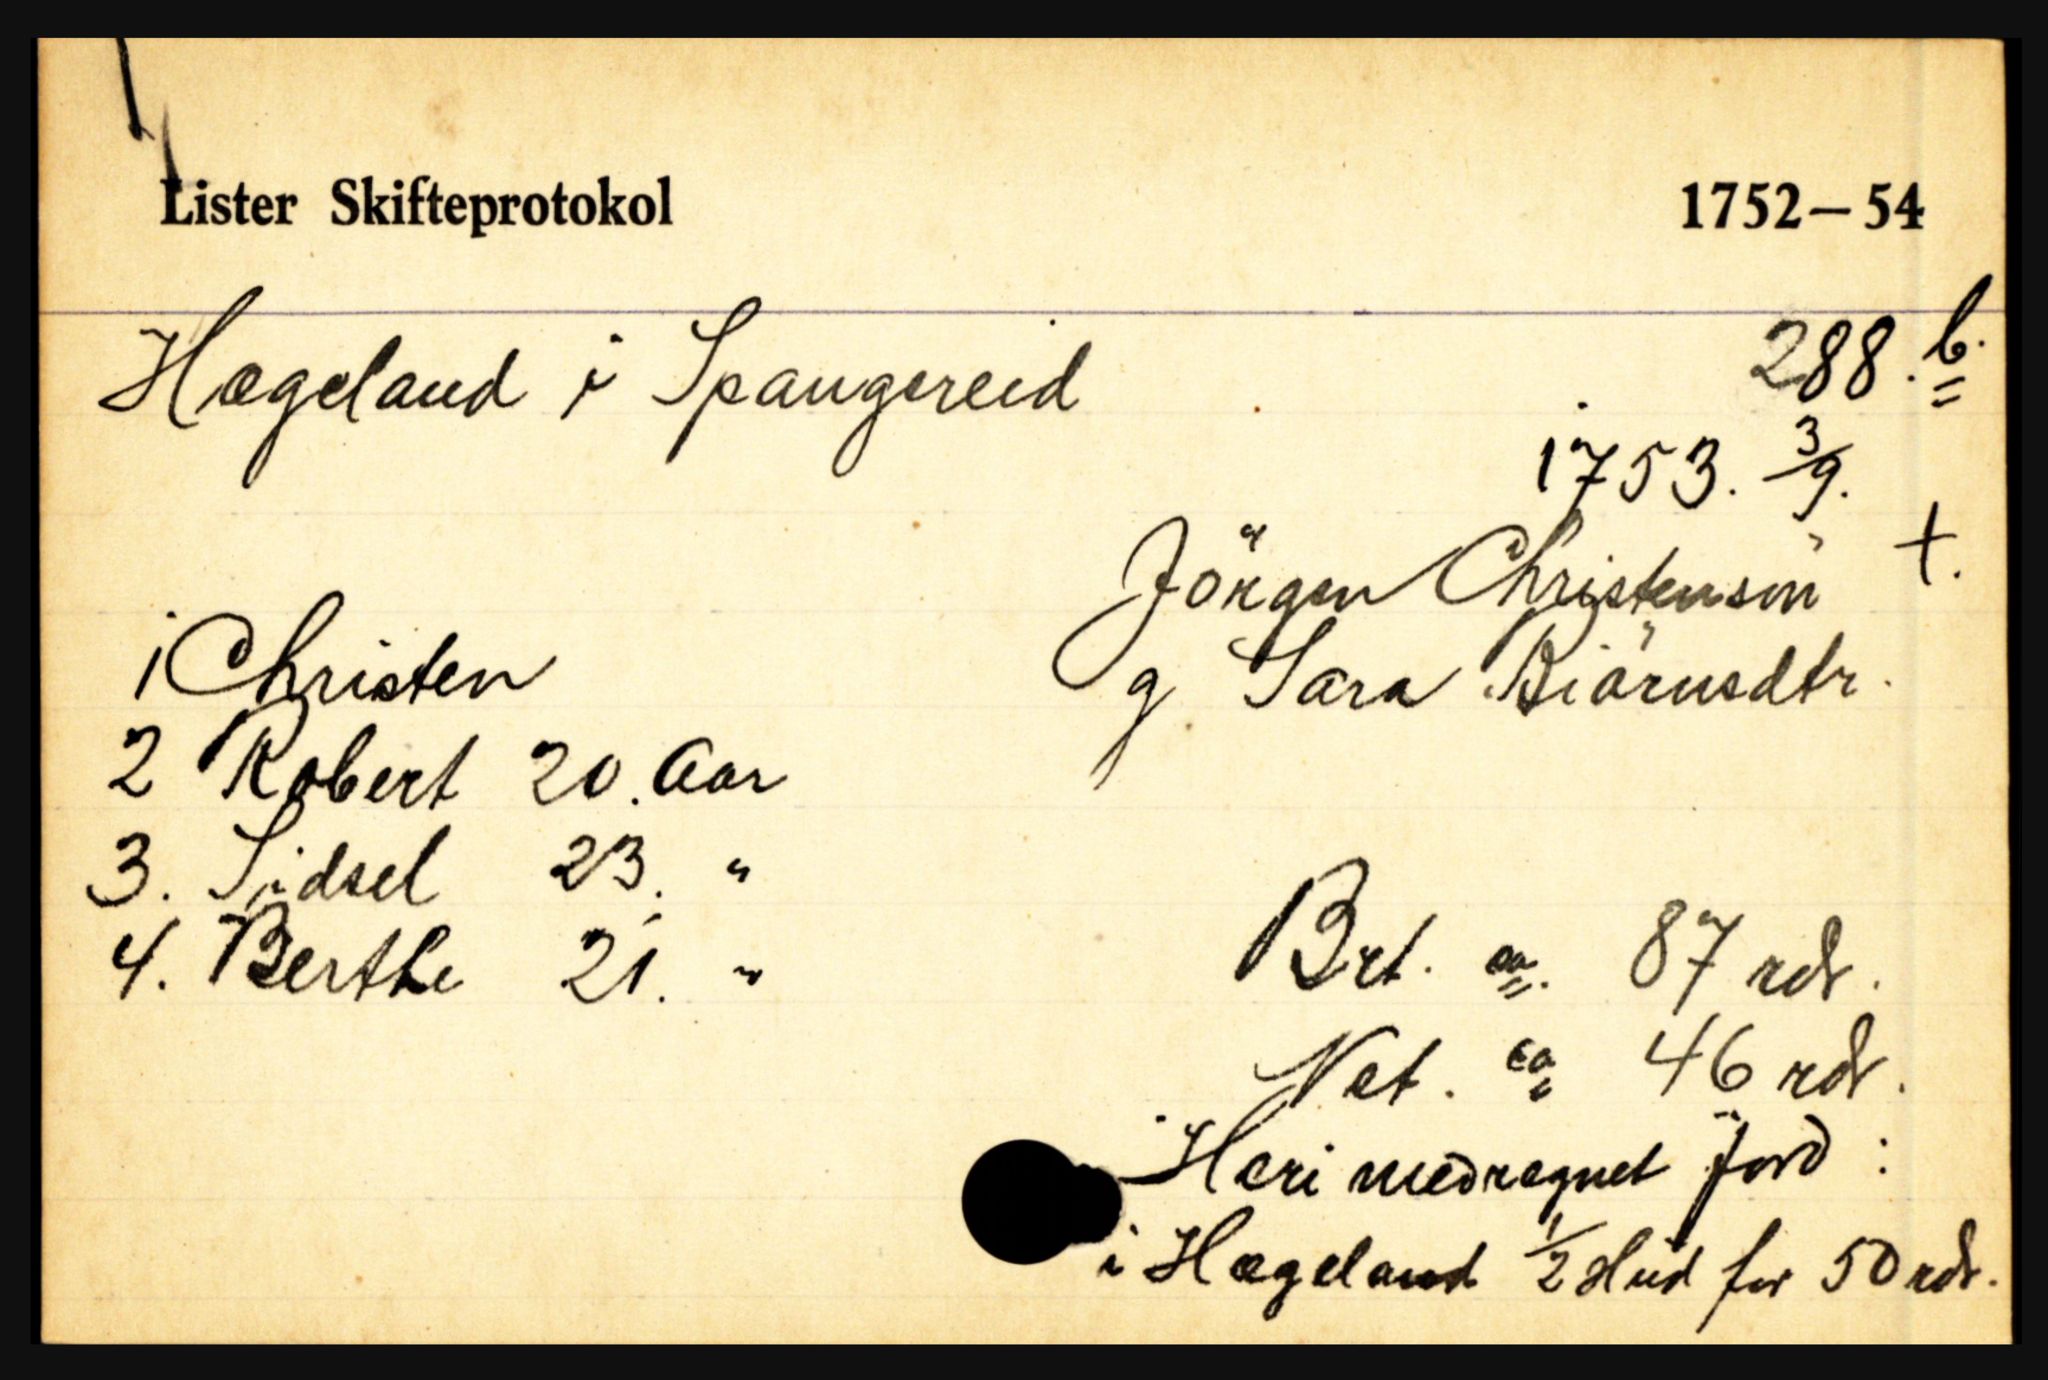 Lister Skifteprotokol 1752–54
Hægeland i Spangereid 288.b.
1753. 3/9.
Jörgen Christensön †.
g Sara Biörnsdtr.
1 Christen
2 Robert 20. Aar
3. Sidsel 23. "
4. Berthe 21. "
Brt. ca. 87 rdr.
Net. ca 46 rdr.
Heri medregnet Jord:
i Hægeland 1/2 Hud for 50 rdr.